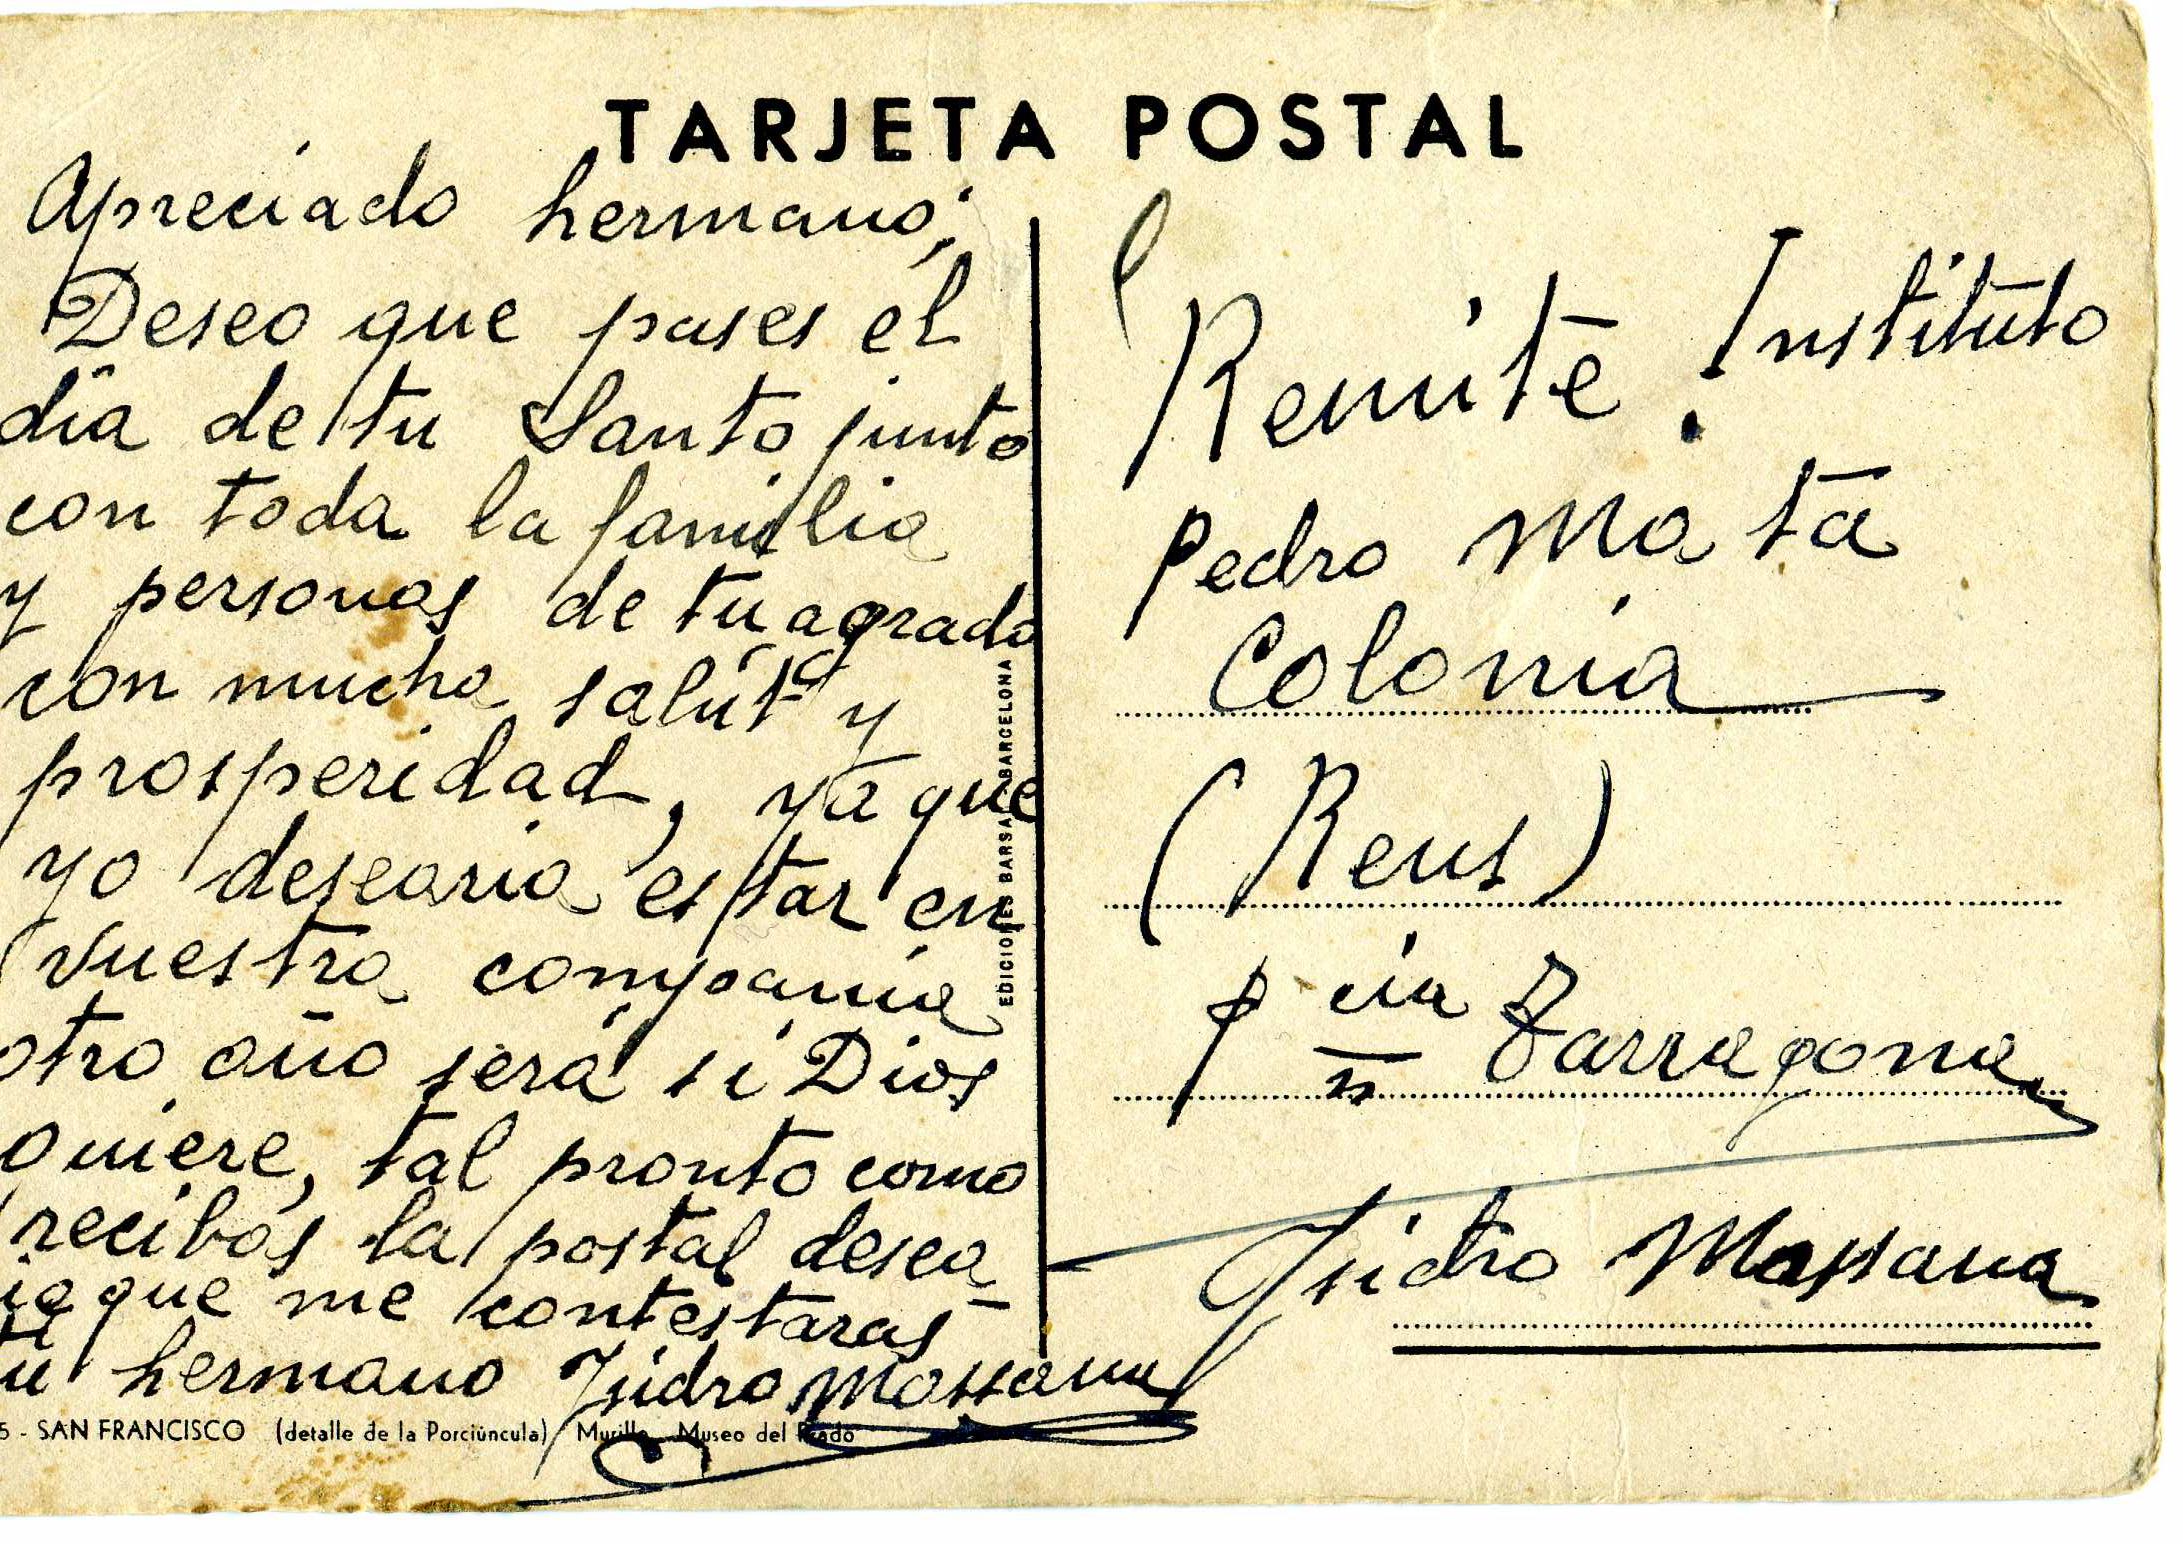 TARJETA POSTAL
Apreciado hermano;
Deseo que pases el
día de tu Santo junto
con toda la familia
y personas de tu agrado
con mucha salut y
prosperidad, ya que
yo desearia estar en
vuestra compania
otro año será si Dios
quiere, tal pronto como
recibas la postal desea
ia que me contestaras
tu hermano Isidro Massana
5 - SAN FRANCISCO (detalle de la Porciúncula) Murillo Museo del Prado
EDICIONES BARSA BARCELONA
Remite: Instituto
Pedro Mata
Colonia
(Reus)
p cia Tarragona
n
Isidro Massana